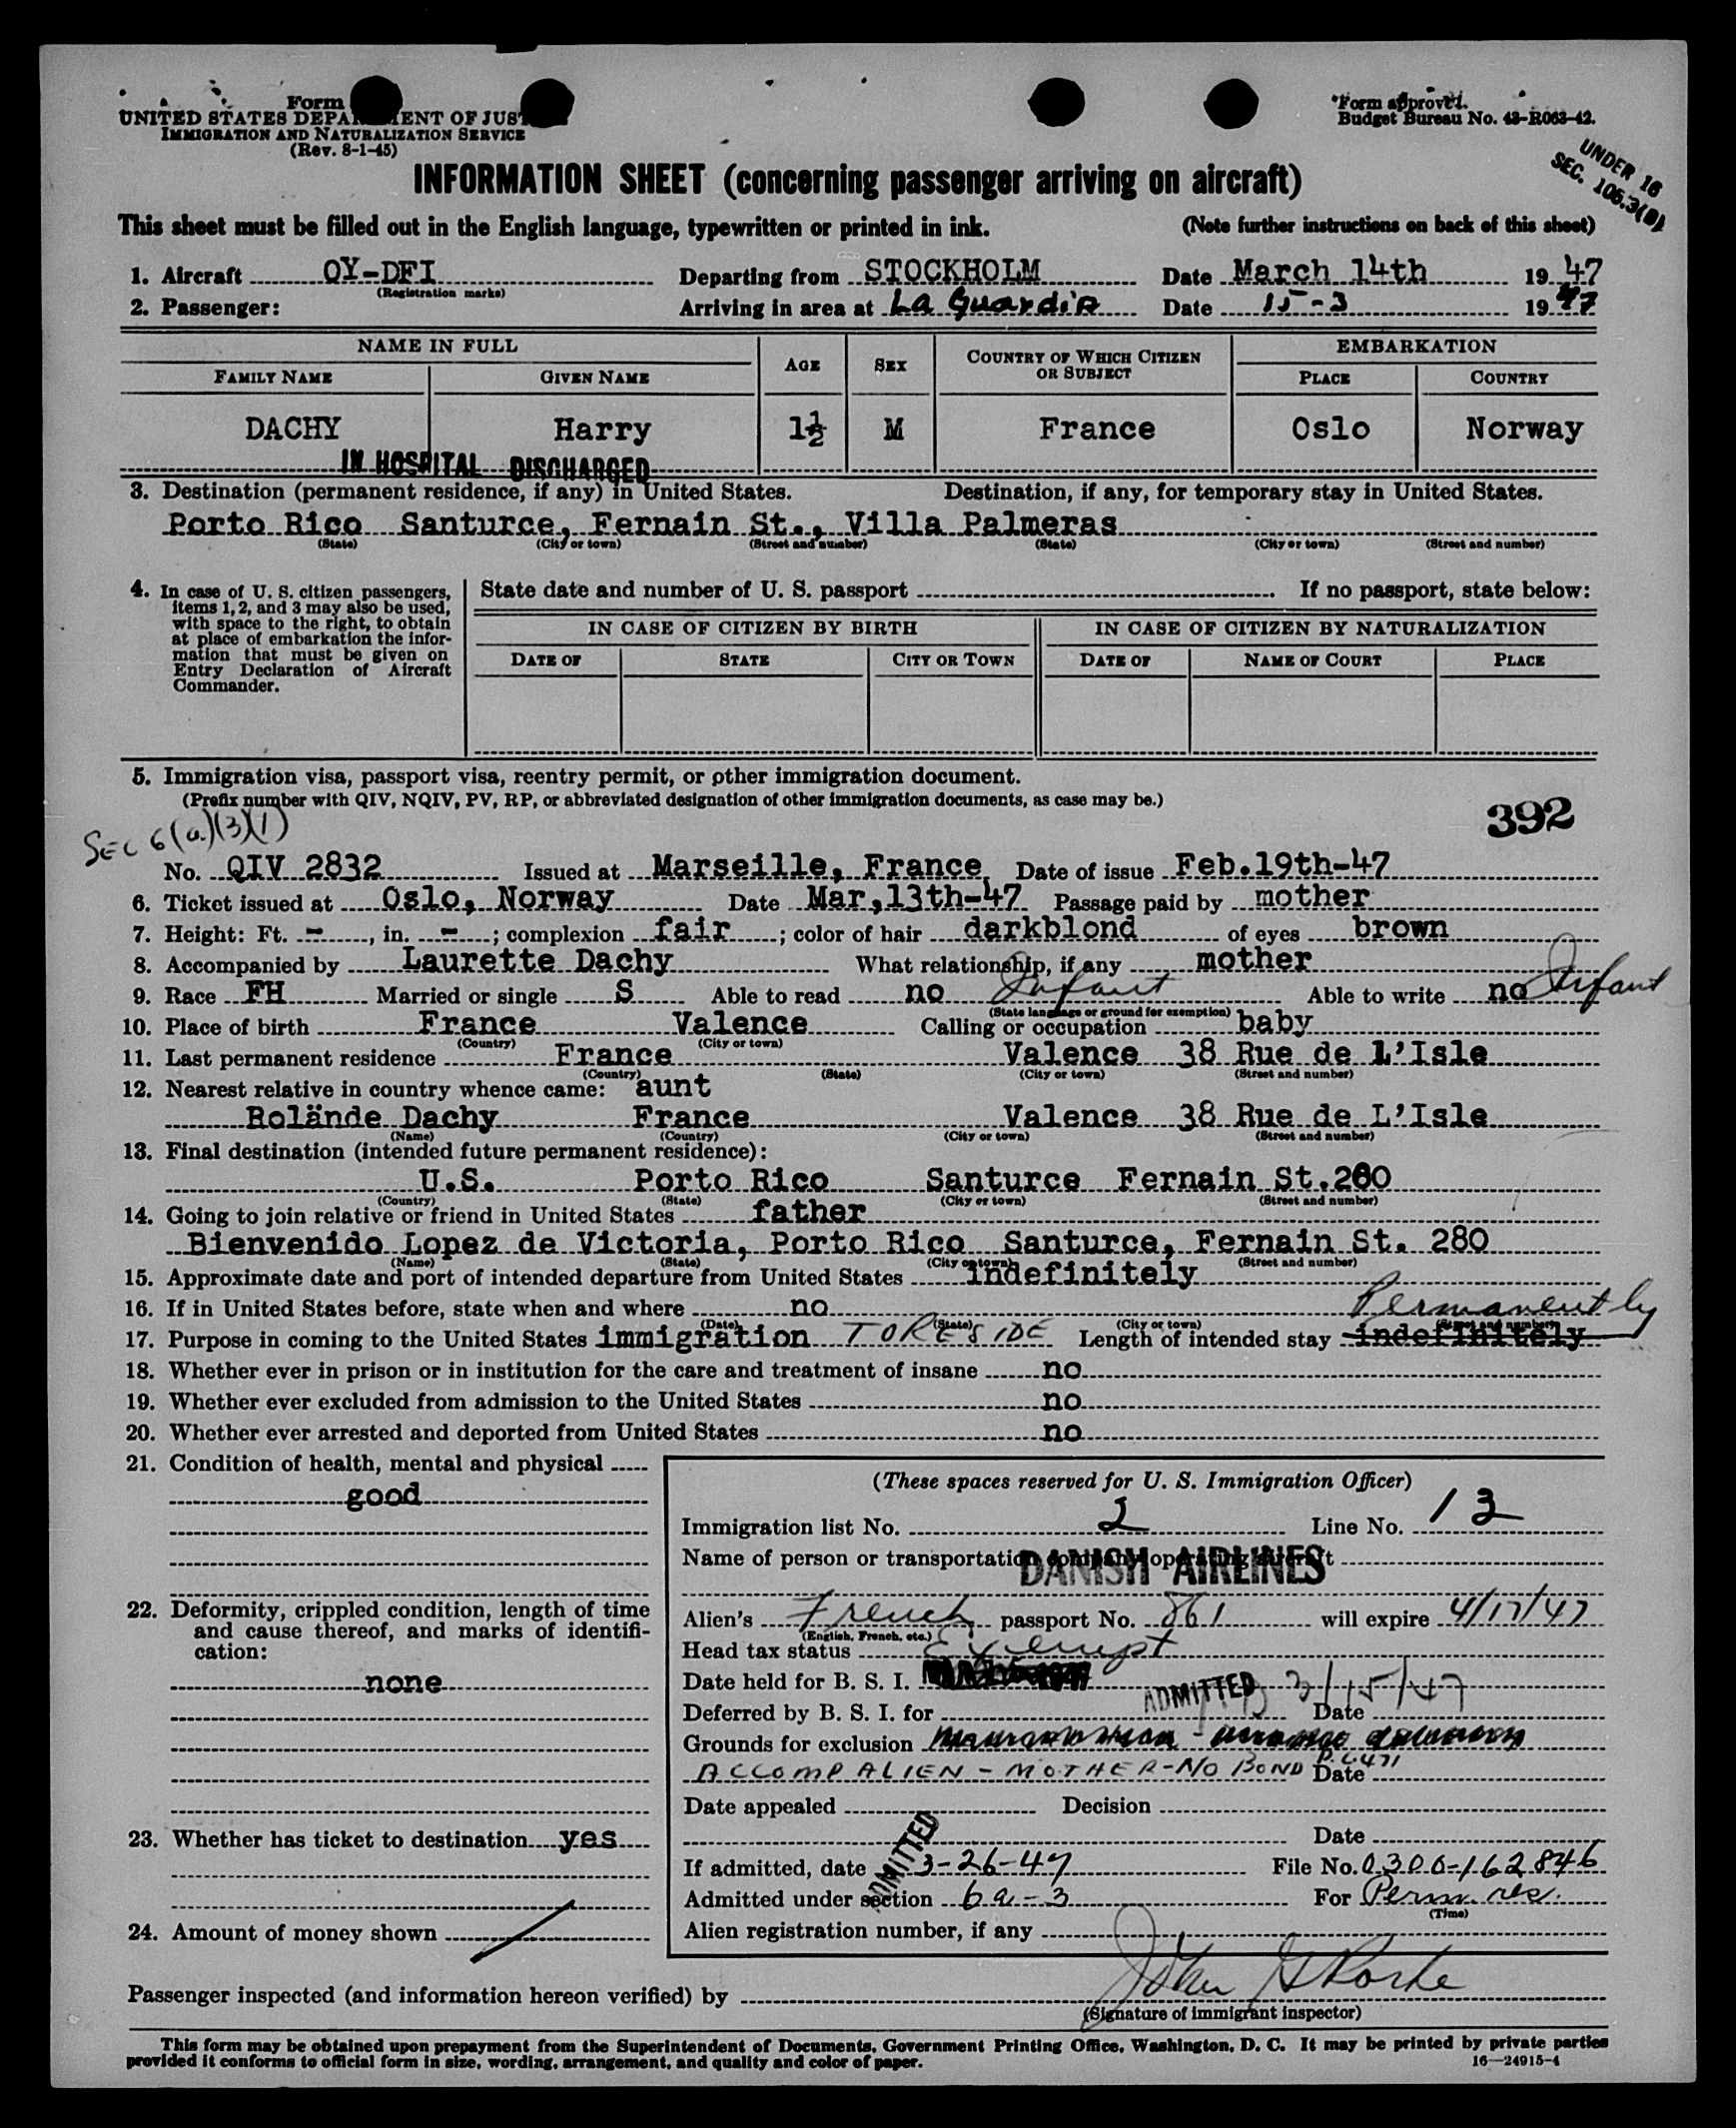 Form
UNITED STATES DEPARTMENT OF JUSTICE
IMMIGRATION AND NATURALIZATION SERVICE
(Rev. 8-1-45)
Form approved.
Budget Bureau No. 43-R063-42.
UNDER 16
SEC. 106.3(B)
INFORMATION SHEET (concerning passenger arriving on aircraft)
This sheet must be filled out in the English language, typewritten or printed in ink. (Note further instructions on back of this sheet)
1. Aircraft OY-DFI Departing from STOCKHOLM Date March 14th 1947
(Registration marks)
2. Passenger: Arriving in area at La Guardia Date 15-3 1947
NAME IN FULL AGE SEX COUNTRY OF WHICH CITIZEN OR SUBJECT EMBARKATION
FAMILY NAME GIVEN NAME PLACE COUNTRY
DACHY Harry 1½ M France Oslo Norway
IN HOSPITAL DISCHARGED
3. Destination (permanent residence, if any) in United States. Destination, if any, for temporary stay in United States.
Porto Rico Santurce, Fernain St., Villa Palmeras
(State) (City or town) (Street and number) (State) (City or town) (Street and number)
4. In case of U. S. citizen passengers, items 1, 2, and 3 may also be used, with space to the right, to obtain at place of embarkation the information that must be given on Entry Declaration of Aircraft Commander.
State date and number of U. S. passport If no passport, state below:
IN CASE OF CITIZEN BY BIRTH IN CASE OF CITIZEN BY NATURALIZATION
DATE OF STATE CITY OR TOWN DATE OF NAME OF COURT PLACE
5. Immigration visa, passport visa, reentry permit, or other immigration document.
(Prefix number with QIV, NQIV, PV, RP, or abbreviated designation of other immigration documents, as case may be.)
392
SEC 6(a)(3)(1)
No. QIV 2832 Issued at Marseille, France Date of issue Feb.19th-47
6. Ticket issued at Oslo, Norway Date Mar,13th-47 Passage paid by mother
7. Height: Ft. -, in. -; complexion fair; color of hair darkblond of eyes brown
8. Accompanied by Laurette Dachy What relationship, if any mother
9. Race FH Married or single S Able to read no Infant Able to write no Infant
(State language or ground for exemption)
10. Place of birth France Valence Calling or occupation baby
(Country) (City or town)
11. Last permanent residence France Valence 38 Rue de L'Isle
(Country) (State) (City or town) (Street and number)
12. Nearest relative in country whence came: aunt
Rolände Dachy France Valence 38 Rue de L'Isle
(Name) (Country) (City or town) (Street and number)
13. Final destination (intended future permanent residence):
U.S. Porto Rico Santurce Fernain St.280
(Country) (State) (City or town) (Street and number)
14. Going to join relative or friend in United States father
Bienvenido Lopez de Victoria, Porto Rico Santurce, Fernain St. 280
(Name) (State) (City or town) (Street and number)
15. Approximate date and port of intended departure from United States indefinitely
16. If in United States before, state when and where no
(Date) (State) (City or town) (Street and number)
Permanently
17. Purpose in coming to the United States immigration TO RESIDE Length of intended stay indefinitely
18. Whether ever in prison or in institution for the care and treatment of insane no
19. Whether ever excluded from admission to the United States no
20. Whether ever arrested and deported from United States no
21. Condition of health, mental and physical
good
22. Deformity, crippled condition, length of time and cause thereof, and marks of identification:
none
23. Whether has ticket to destination yes
24. Amount of money shown
(These spaces reserved for U. S. Immigration Officer)
Immigration list No. 2 Line No. 13
Name of person or transportation company operating aircraft
DANISH AIRLINES
Alien's French passport No. 861 will expire 4/17/47
(English, French, etc.)
Head tax status Exempt
Date held for B. S. I.
ADMITTED 3/15/47
Deferred by B. S. I. for Date
Grounds for exclusion
ACCOMP ALIEN - MOTHER - NO BOND Date
Date appealed Decision
Date
ADMITTED
If admitted, date 3-26-47 File No. 0300-162846
Admitted under section 6a-3 For Perm. res.
(Time)
Alien registration number, if any
Passenger inspected (and information hereon verified) by
(Signature of immigrant inspector)
This form may be obtained upon prepayment from the Superintendent of Documents, Government Printing Office, Washington, D. C. It may be printed by private parties
provided it conforms to official form in size, wording, arrangement, and quality and color of paper.
16—24915-4